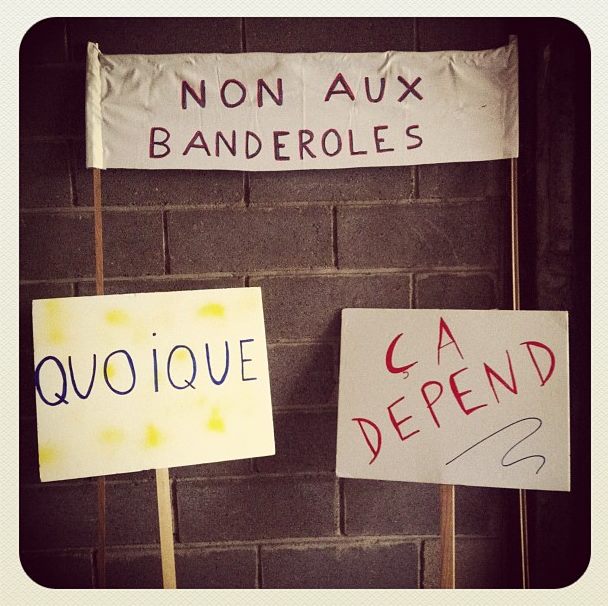 NON AUX
BANDEROLES
QUOiQUE
ÇA
DEPEND